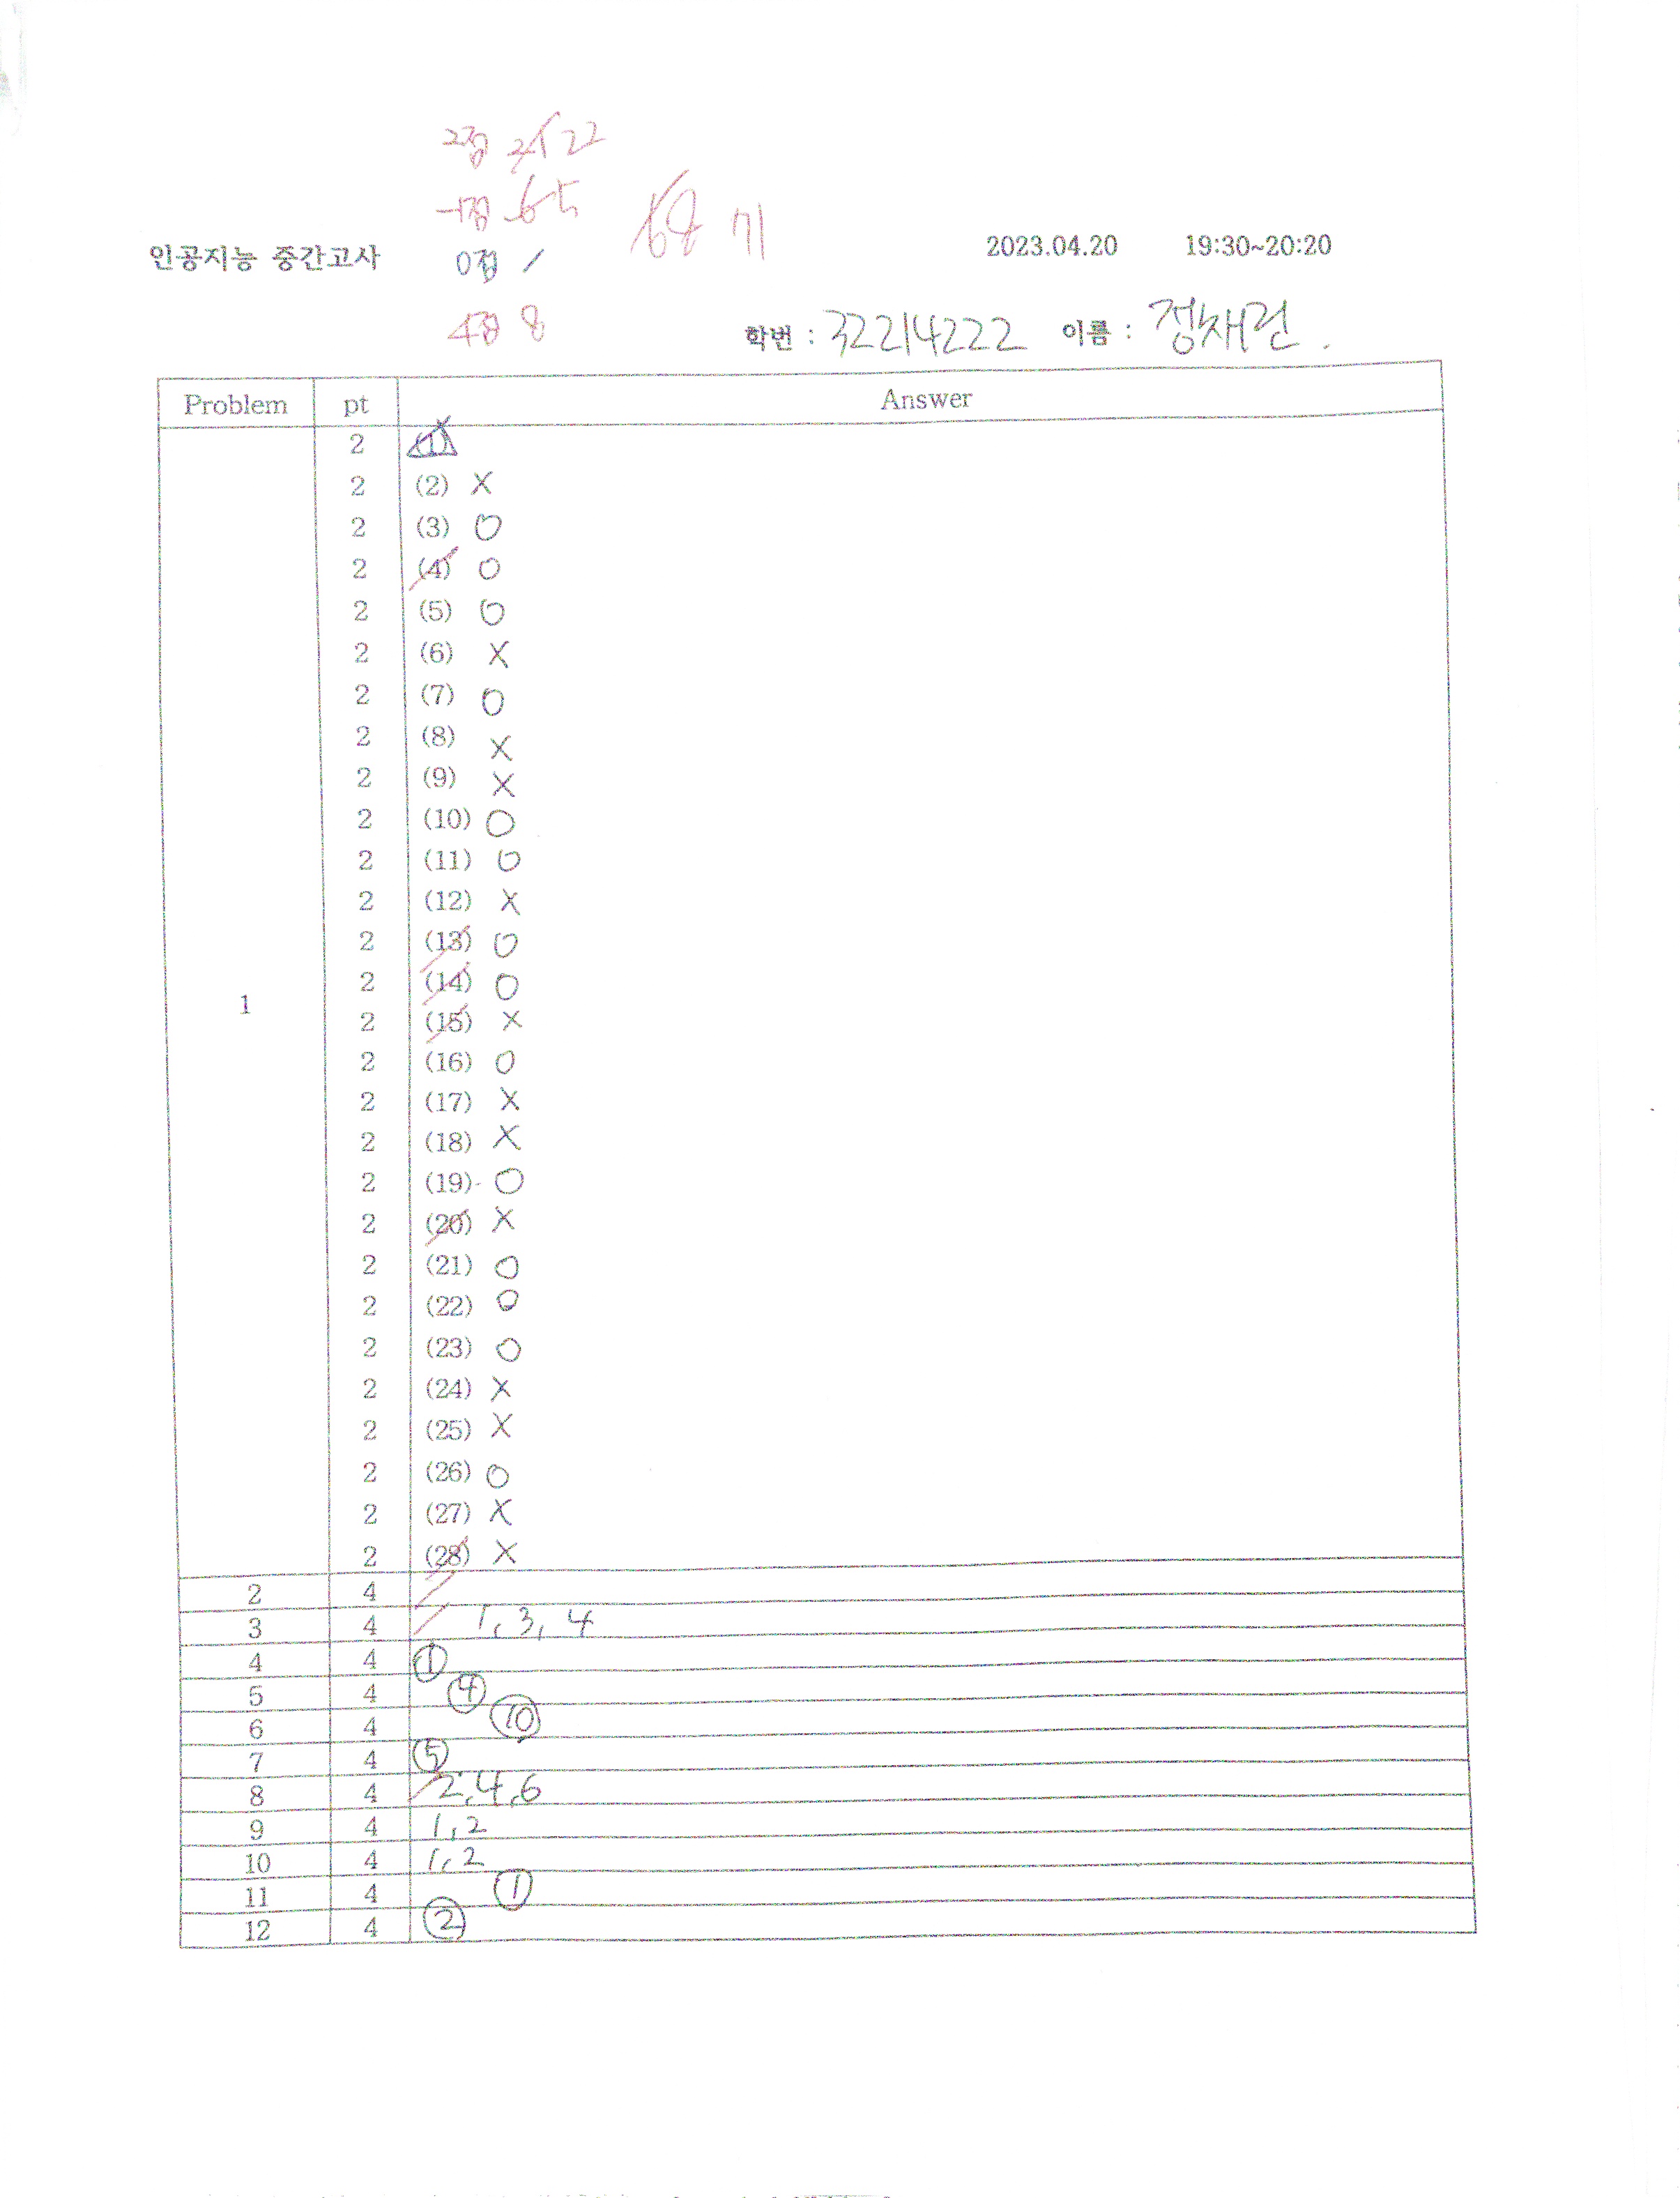 2점 21 22
-1점 6 5
68 71
인공지능 중간고사
0점 /
2023.04.20 19:30~20:20
4점 8
학번 : 32214222 이름 :
Problem pt Answer
2 (1)
2 (2) X
2 (3) O
2 (4) O
2 (5) O
2 (6) X
2 (7) O
2 (8) X
2 (9) X
2 (10) O
2 (11) O
2 (12) X
2 (13) O
2 (14) O
1
2 (15) X
2 (16) O
2 (17) X
2 (18) X
2 (19) O
2 (20) X
2 (21) O
2 (22) O
2 (23) O
2 (24) X
2 (25) X
2 (26) O
2 (27) X
2 (28) X
2 4
3 4 1, 3, 4
4 4 ①
5 4 ④
6 4 ⑩
7 4 ⑤
8 4 2, 4, 6
9 4 1, 2
10 4 1, 2
11 4 ①
12 4 ②